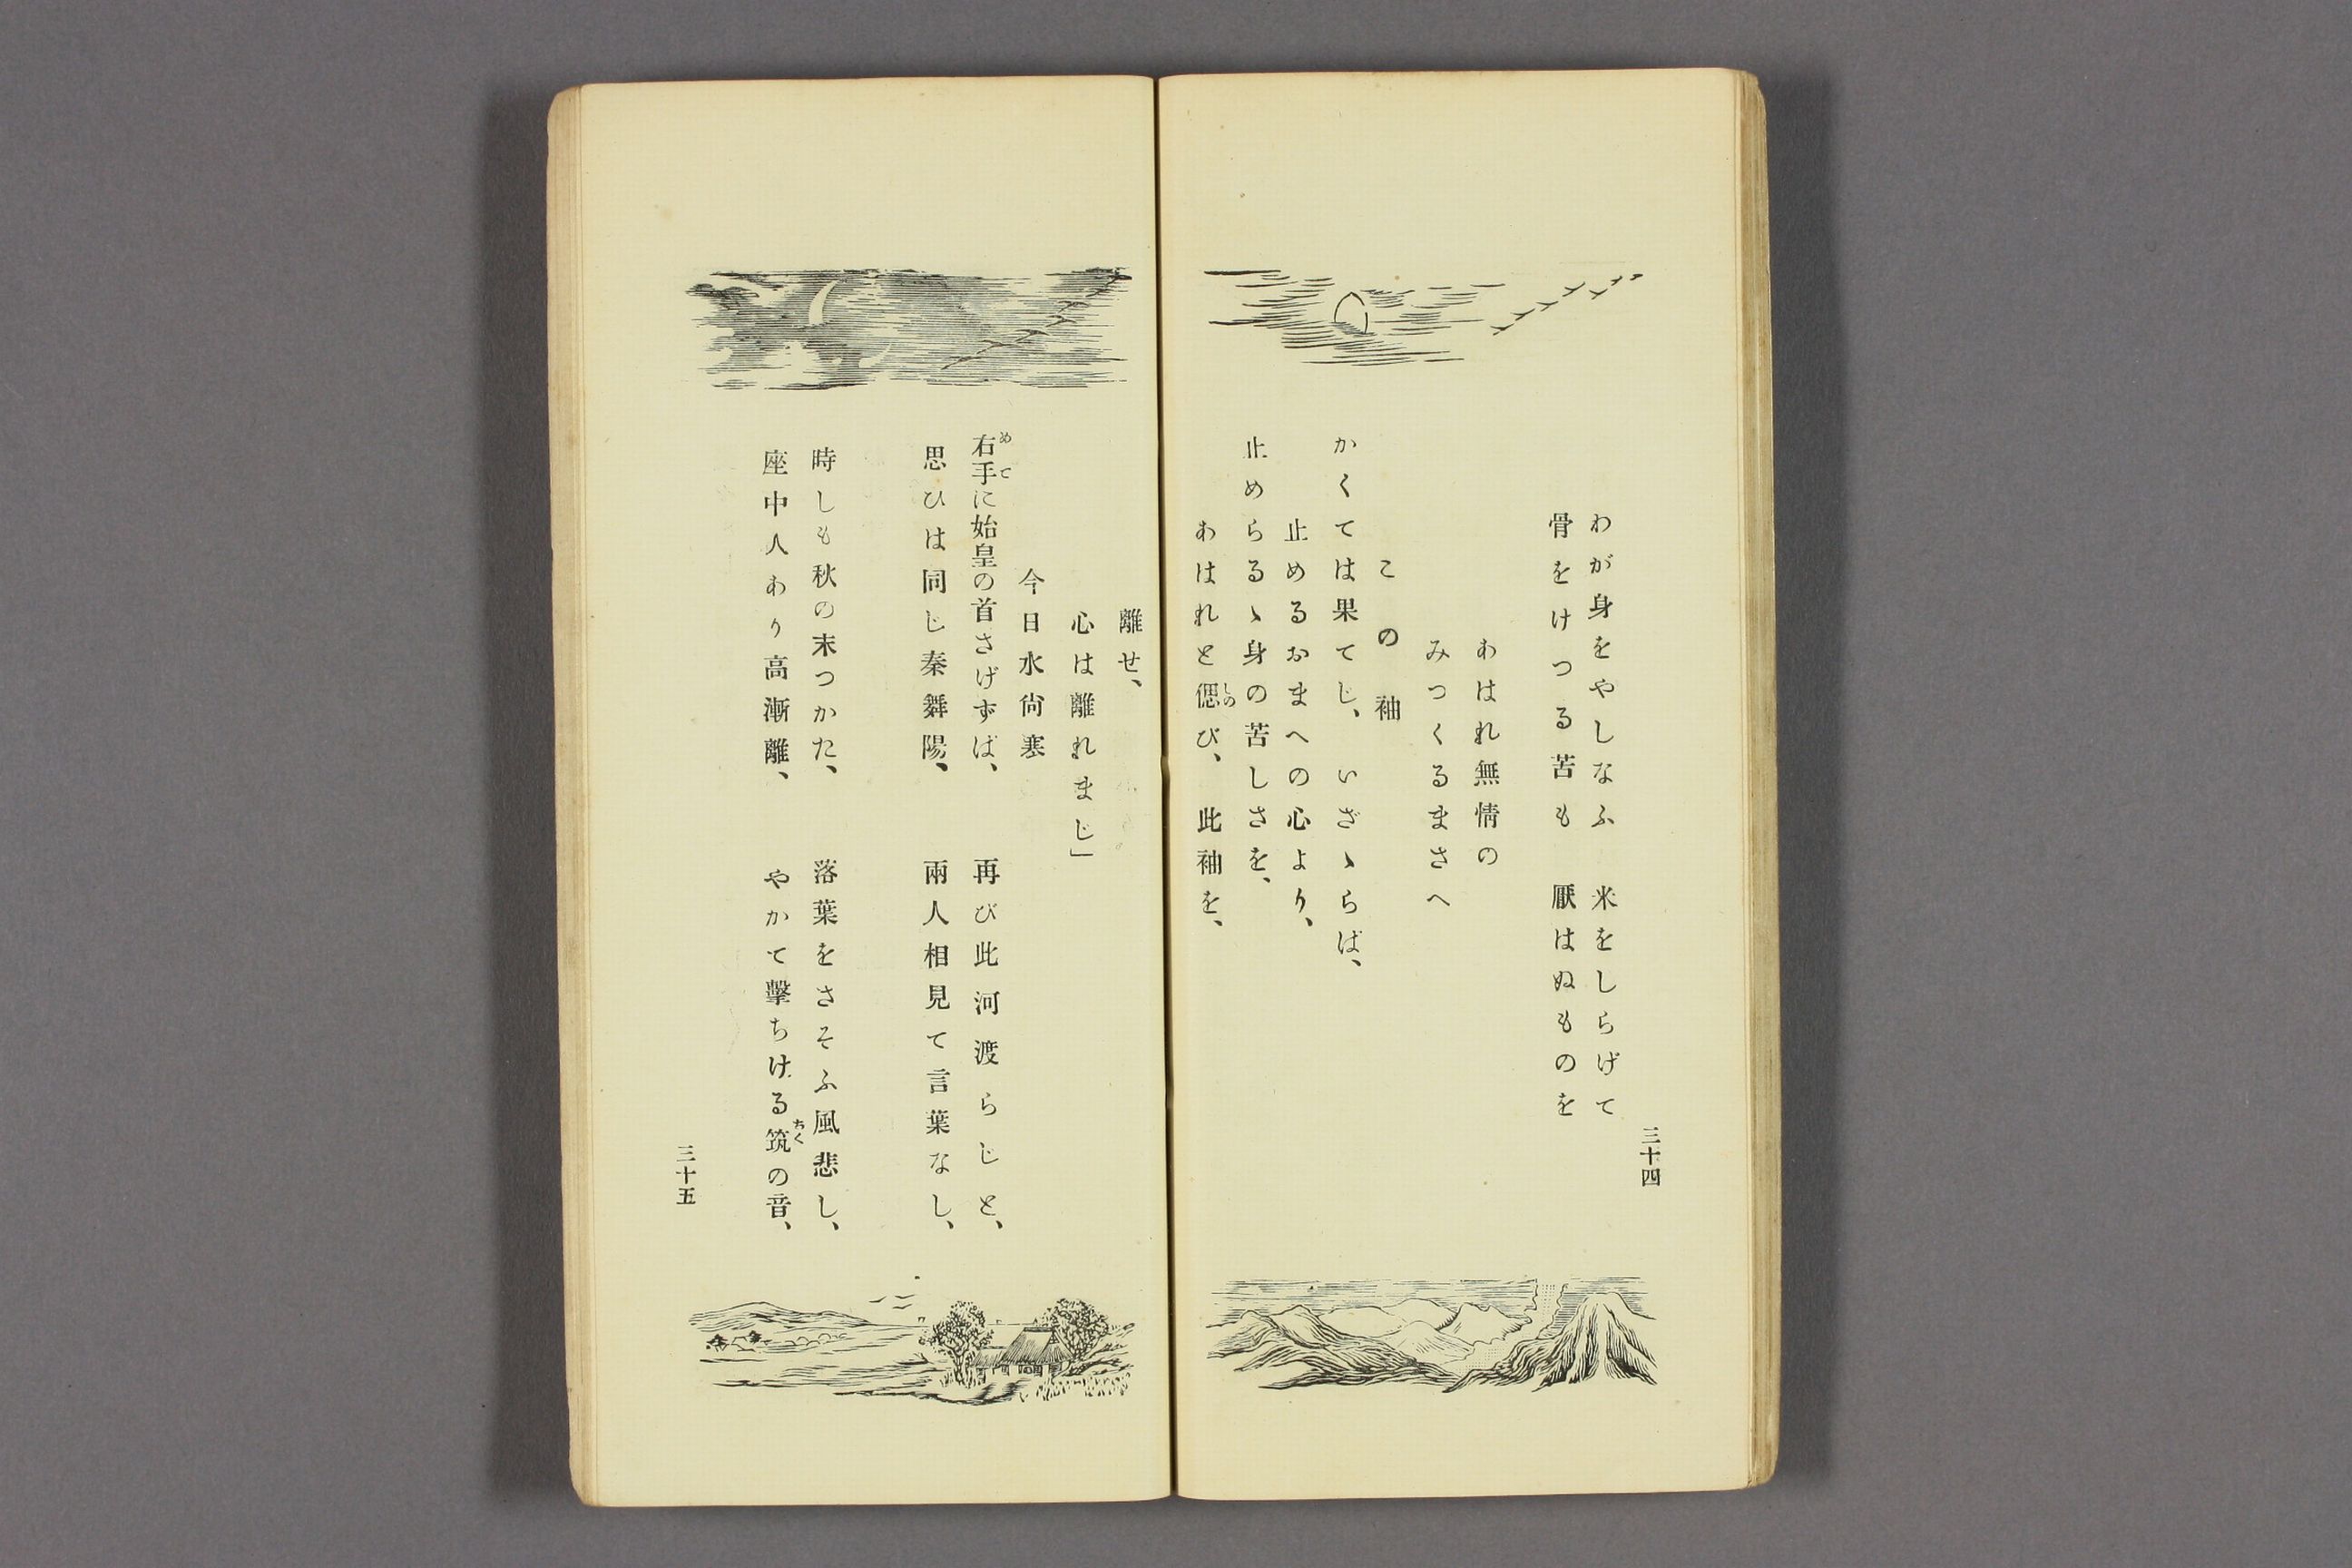 わが身をやしなふ　米をしらげて
骨をけつる苦も　厭はぬものを
あはれ無情の
みつくるまさへ
この袖
かくては果てじ、いざゝらば、
止めるおまへの心より、
止めらるゝ身の苦しさを、
あはれと偲び、此袖を、
しの
三十四
離せ、
心は離れまじ」
今日水尙寒
右手に始皇の首さげずば、　再び此河渡らじと、
めて
思ひは同じ秦舞陽、　兩人相見て言葉なし、
時しも秋の末つかた、　落葉をさそふ風悲し、
座中人あり高漸離、　やかて擊ちける筑の音、
ちく
三十五